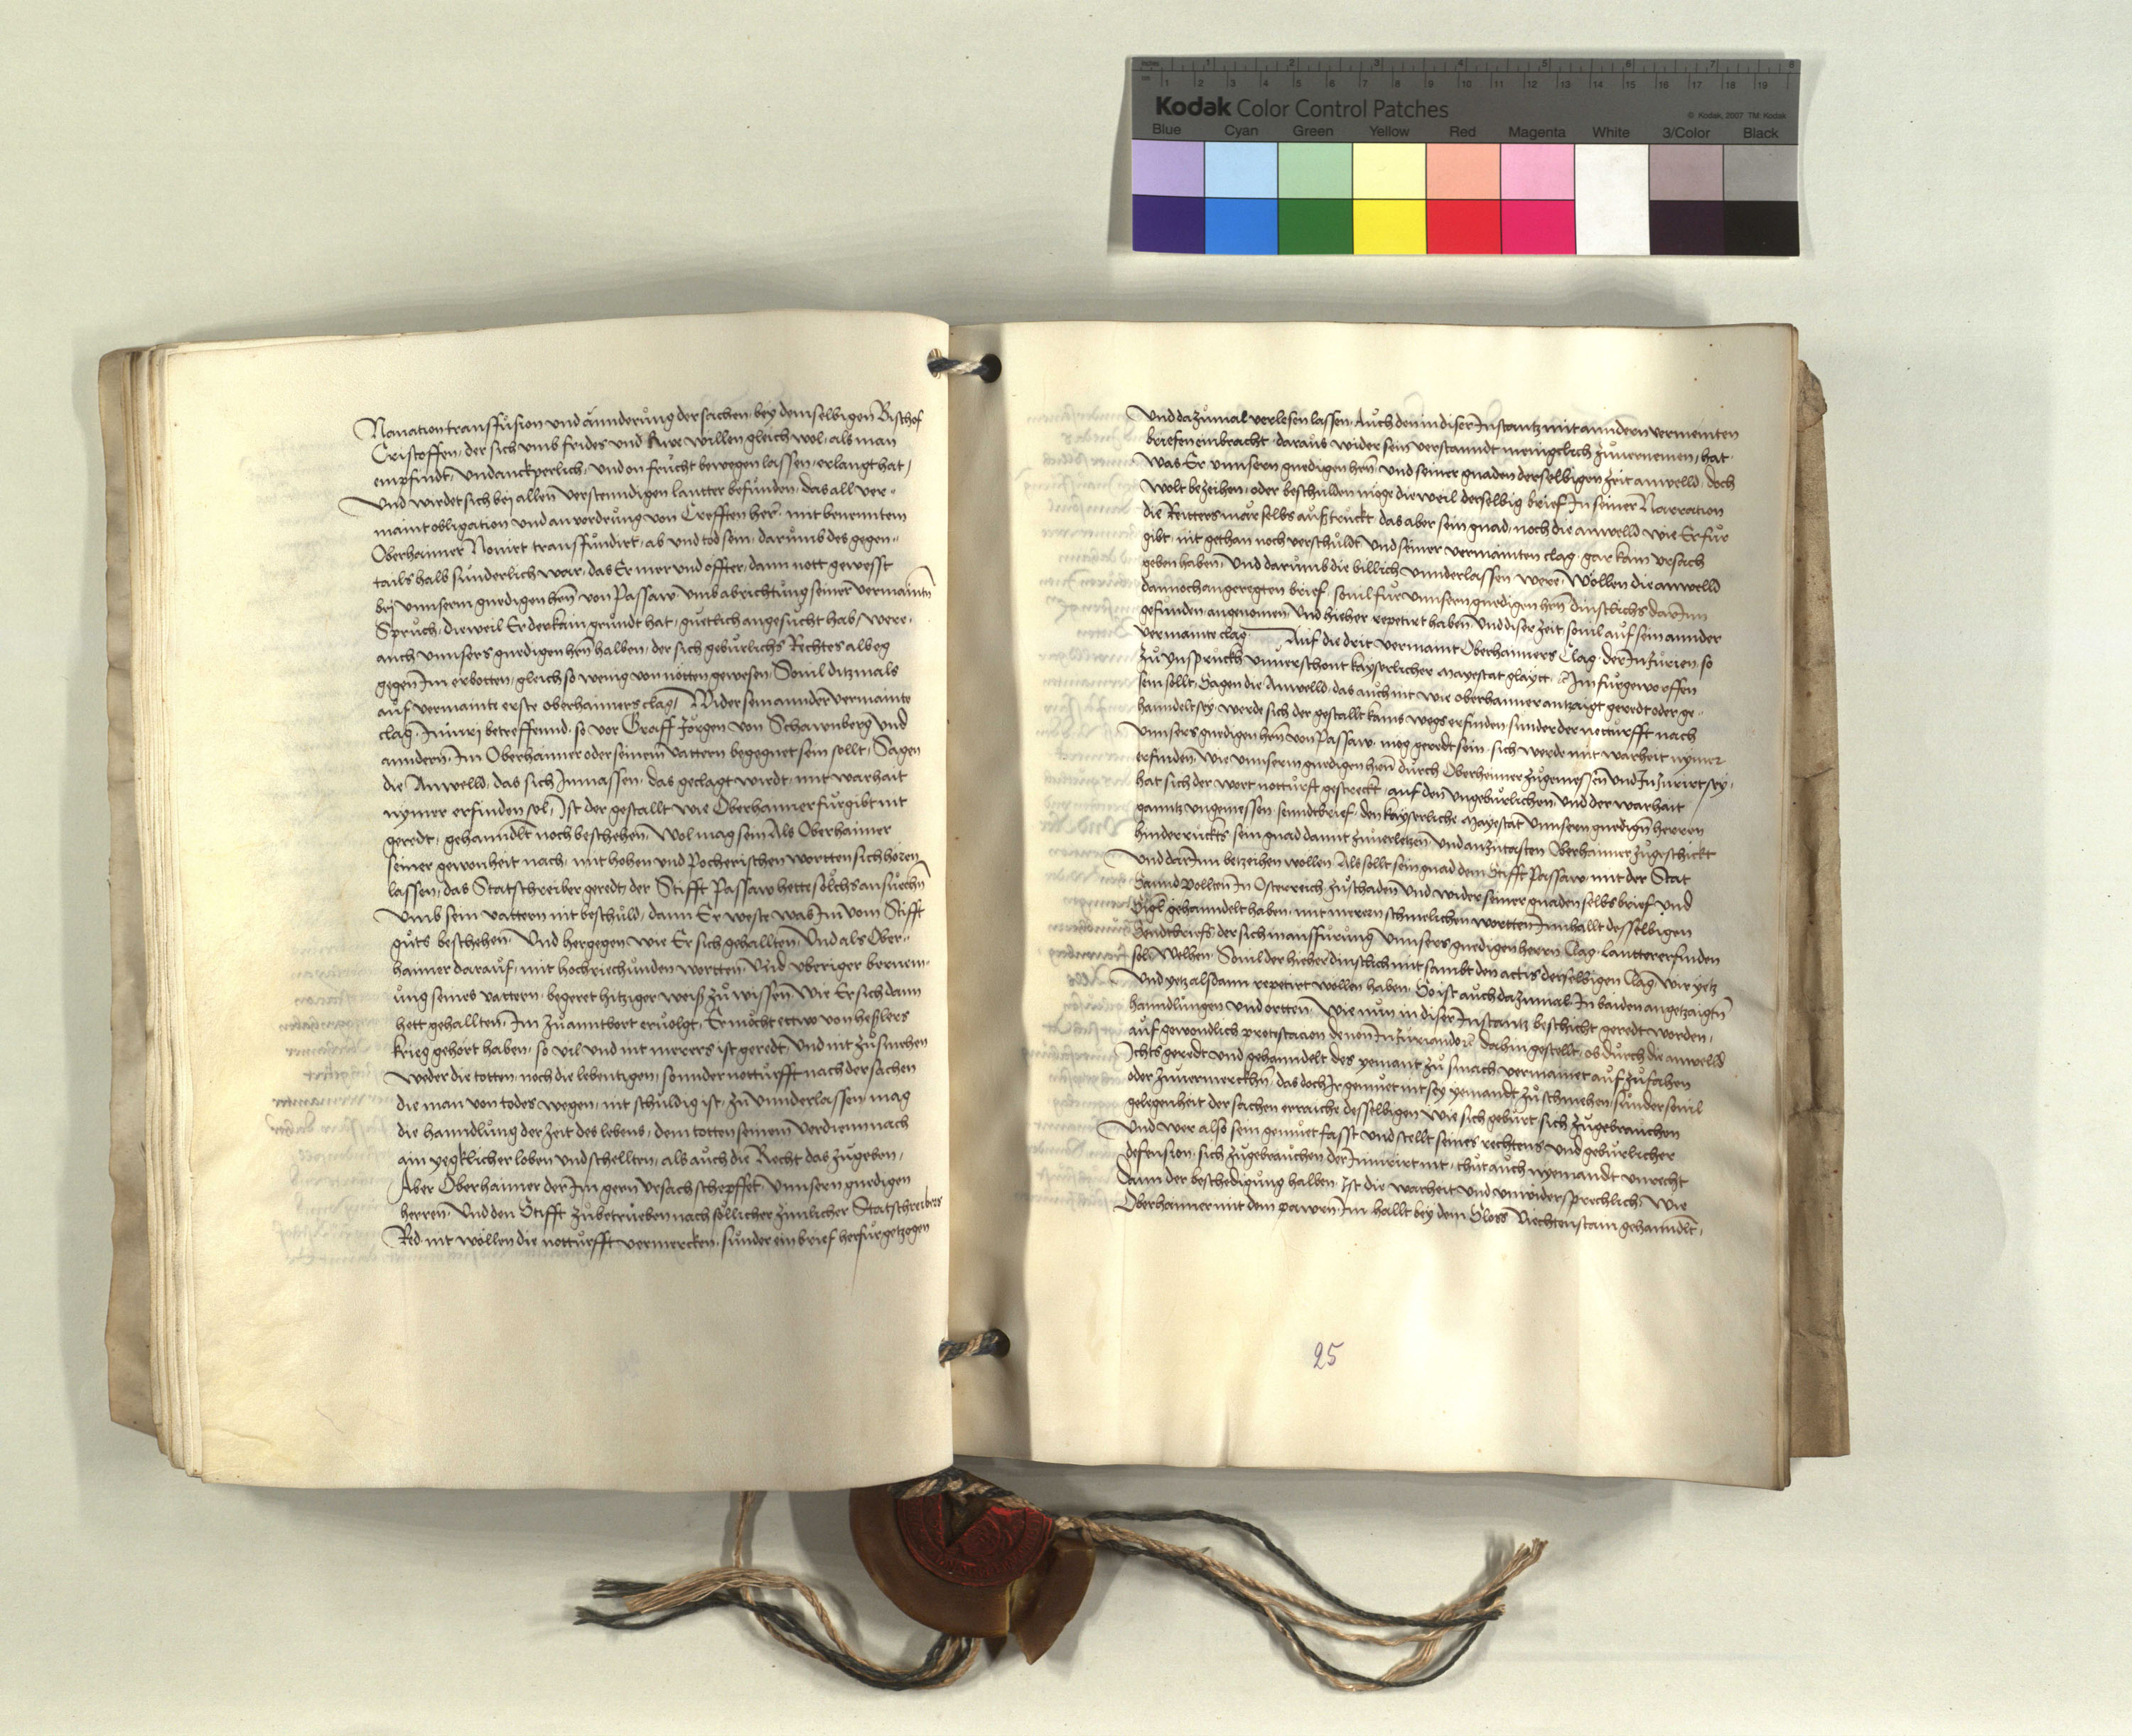 inches 1 2 3 4 5 6 7 8
cm 1 2 3 4 5 6 7 8 9 10 11 12 13 14 15 16 17 18 19
Kodak Color Control Patches © Kodak, 2007 TM: Kodak
Blue Cyan Green Yellow Red Magenta White 3/Color Black
Nauation transfusion und ännderung der sachen, bey demselbigen Bischof
Cristoffen, der sich umb frides und Rue willen gleich wol, als man
empfindt, undanckperlich, und on frucht bewegen lassen, erlangt hat,
Und wirdet sich bei allen verstenndigen lautter befunden, das all ver-
maint obligation und anvordrung von Crefften her, mit benenntem
Oberhaimer Novirt transfundirt, ab und tod sein, darumb des gegen-
tails halb sunderlich war, das Er mer und öffter, dann nott gewesst
bey unnserm gnedigen hern von Passaw umb abrichtung seiner vermainten
Spruch, dieweil Er der kain grundt hat, guetlich angesucht hab, were,
auch unnsers gnedigen hern halben, der sich gebürlichs Rechtes albeg
gegen Im erbotten, gleich so wenig von nötten gewesen, Souil ditzmals
auf vermainte erste oberhaimers clag, Wider sein annder vermainte
clag, Iniuri betreffennd, so vor Graff Jörgen von Schawnberg und
anndern, Im Oberhaimer oder seinem vattern begegnet sein sollt, Sagen
die Anwelld, das sich Inmassen, das geclagt wirdt, mit warhait
nymer erfinden sol, Ist der gestallt wie Oberhaimer fürgibt nit
geredt, gehanndlt noch beschehen, Wol mag sein Als Oberhaimer
seiner gewonheit nach, mit hohen und Pocherischen wortten sich hören
lassen, das Statschreiber geredt, der Stifft Passaw hette sölchs ansuechn
Umb sein vattern nit beschuld, dann Er weste was Im vom Stifft
guts beschehen, Und hergegen wie Er sich gehallten, Und als Ober-
haimer darauf, mit hochriechunden wortten, Und uberiger berüem-
ung seines vattern, begeret hitziger weiß zu wissen, Wie Er sich dann
hett gehallten, Im zu anntwort ervolgt, Er möcht ettwo von heßlers
krieg gehort haben, so vil und nit merers ist geredt, Und nit zu smehen
Weder die totten, noch die lebentigen, sonnder notturfft nach der sachen
die man von todes wegen, nit schuldig ist, zu unnderlassen, mag
die hanndlung der zeit des lebens, dem totten seinem verdienn nach
ain yegklicher loben und schellten, als auch die Recht das zugeben,
Aber Oberhaimer der Im gern ursach schepffet, unnsern gnedigen
herren, Und den Stifft zubetrueben nach söllicher zimlicher Statschreibers
Red, nit wöllen die notturfft vermercken, sunder ein brief herfür getzogen
Und dazumal verlesen lassen, Auch den in diser Instantz mit anndern vermeinten
briefen einbracht, daraus wider sein verstanndt menigclich zuuernemen, hat,
Was Er unnsern gnedigen hern und seiner gnaden derselbigen zeit anwelld, doch
wolt bezeihen, oder beschulden möge die weil derselbig brief In seiner Narration
die Reitters mär selbs außtruckt, das aber sein gnad, noch die anwelld wie Er für
gibt, nit gethan noch verschuldt, und seiner vermainten clag, gar kain ursach
geben haben, Und darumb die billich unnderlassen were, Wöllen die anwelld
dannoch angeregten brief, souil für unnsern gnedigen hern dinstlichs darInn
gefunden angenomen, Und hieher repetirt haben, Und diser zeit souil auf sein annder
vermainte clag. Auf die drit vermaint Oberhaimers Clag, der Iniurien, so
zu Ynspruckh unuerschont kayserlicher Mayestat glaytt, Im fürgeworffen
sein sollt, Sagen die Anwelld, das auch nit wie oberhaimer antzaigt geredt oder ge-
hanndelt sey, werde sich der gestallt kains wegs erfinden, sunder der notturfft nach
Unnsers gnedigen hern von Passaw, mog geredt sein, sich werde mit warheit nymer
erfinden, wie unnserm gnedigen hern durch Oberheimer zugemessen, und Iniurirt sey,
hat sich der wort notturft gestreckt, auf den ungebürlichen, Und der warhait
ganntz ungemessen, senndtbrief, den kayserliche Mayestat unnsern gnedign herren
hinderruckts sein gnad damit zuuerletzen, Und anzutasten Oberhaimer zugeschickt
Und darInn betzeihen wollen, Als sollt sein gnad dem Stifft Passaw, mit der Stat
Sannd Pollten In Osterreich, zu schaden und wider seiner gnaden selbs brief und
Sigl gehanndelt haben, mit merern schmelichen wortten Innhallt desselbigen
Senndtbriefs, der sich in ausfürung unnsers gnedigen herrn Clag, lautter erfinden
sol, Welhen, Souil der hieher dinstlich mit sambt den actis derselbigen Clag, wir yetz
Und yetz alsdann repetirt wöllen haben, So ist auch dazumal, In baiden angetzaigtn
hanndlungen und ortten, Wie nun in diser Instantz beschicht geredt worden,
auf gewondlich protestacion de non Iniuriando, dahin gestellt, ob durch die anwelld
Ichts geredt und gehanndelt des yemant zu smach vermainet auf zufahen
oder zuuermerckhen, das doch Ir gemuet nit sey yemandt zu schmehen, sunder souil
gelegenheit der sachen erraiche, desselbigen wie sich gebürt sich zugebrauchen
Und wer also sein gemuet fasst und stellt seines rechtens und gebürlicher
defension, sich zugebrauchen der Iniurirt nit, thut auch nyemandt unrecht
Dann der beschedigung halben, Ist die warheit und unwidersprechlich, Wie
Oberhaimer mit dem pawrn, Im hallt bey dem Sloss Viechtenstain gehanndlt,
25